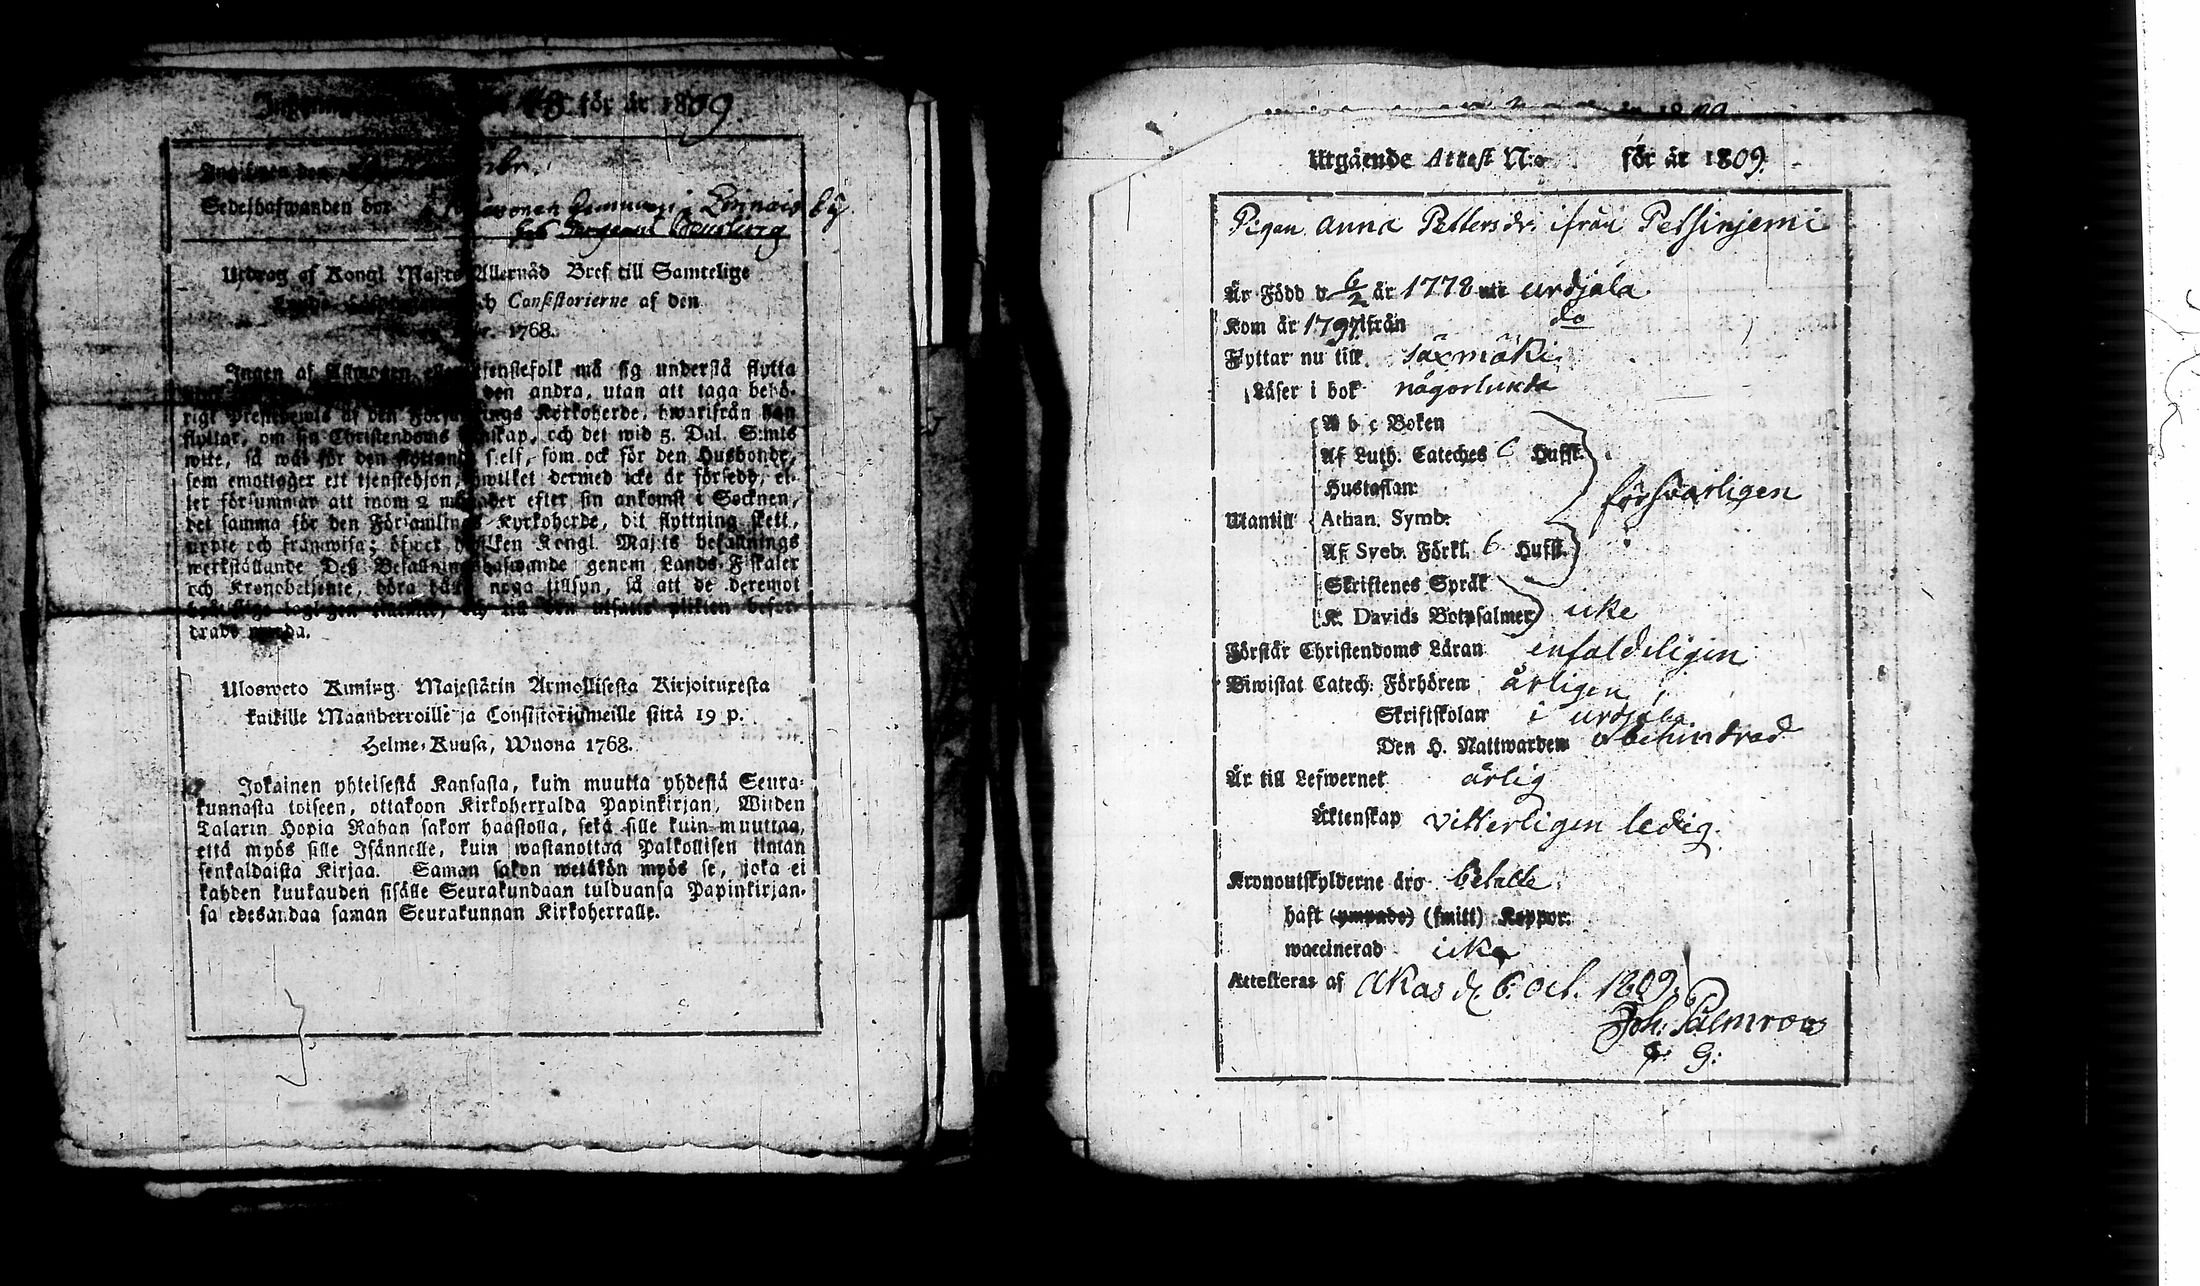 för år 1809.
Sedelhafwanden bor
by
Utdrag af Kongl Maj:ts Allernåd Bref till Samtelige
och Consistorierne af den
1768.
Ingen af må sig understå flytta
den andra, utan att taga behö-
rigt Prestebewis af den Församlings Kyrkoherde, hwarifrån han
flyttar, om sin Christendoms kunskap, och det wid 5. Dal. S:mts
wite, så wäl för den flyttande sielf, som ock för den Husbonde,
som emottager ett tjenstehjon, hwilket dermed icke är försedt, el-
ler försummar att inom 2 månader efter sin ankomst i Socknen,
det samma för den Församlings Kyrkoherde, dit flyttning skett,
uppte och framwisa; öfwer hwilken Kongl. Maj:ts befallnings
werkställande Deß Befallningshafwande genom Lands-Fiskaler
och Kronobetjente, böra hafwa noga tillsyn, så att de deremot
och till den utsatte plikten befor-
drade warda.
Ulosweto Kuning. Majestätin Armollisesta Kirjoituxesta
kaikille Maanherroille ja Consistoriumeille siitä 19 p.
Helme-Kuusa, Wuona 1768.
Jokainen yhteisestä Kansasta, kuin muutta yhdestä Seura-
kunnasta toiseen, ottakoon Kirkoherralda Papinkirjan, Wiiden
Talarin Hopia Rahan sakon haastolla, sekä sille kuin muuttaa,
että myös sille Isännelle, kuin wastanottaa Palkollisen ilman
senkaldaista Kirjaa. Saman sakon wetäkön myös se, joka ei
kahden kuukauden sisälle Seurakundaan tulduansa Papinkirjan-
sa edesandaa saman Seurakunnan Kirkoherralle.
Utgående Attest N:o för år 1809.
Pigan Anna Pettersdr. ifrån Petsinjemi
Är Född d 6/2 år 1778 uti Urdjala
Kom år 1797 ifrån do
Flyttar nu till Säxmäki
Läser i bok någorlunda
A b c Boken
Af Luth. Cateches 6 Hufst.
Hustaflan
försvarligen
Utantill Athan. Symb.
Af Sveb. Förkl. 6 Hufst.
Skriftenes Språk
K. Davids Botpsalmer icke
Förstår Christendoms Läran enfaldeligen
Biwistat Catech. Förhören årligen
Skriftskolan i Urdjala
Den H. Nattwarden obehindrad
Är till Lefwernet ärlig
Äktenskap vitterligen ledig.
Kronoutskylderne äro betalte.
haft (ympade) (smitt) Koppor.
waccinerad icke
Attesteras af Akas d. 6. Oct. 1809
Joh: Palmroos